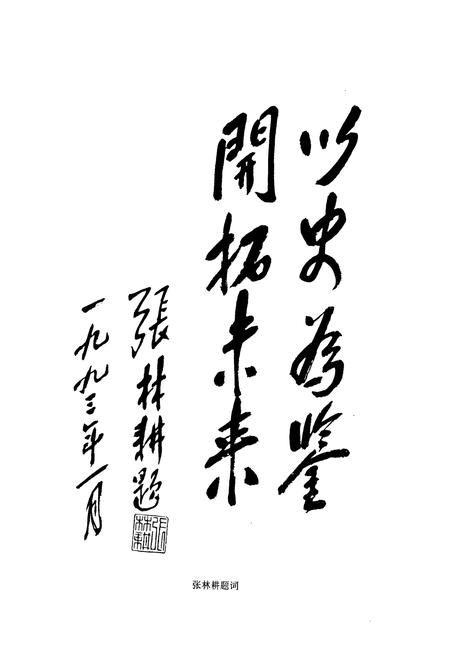 以史为鉴
開拓未来
張林耕题
一九九三年一月
張林耕
张林耕题词